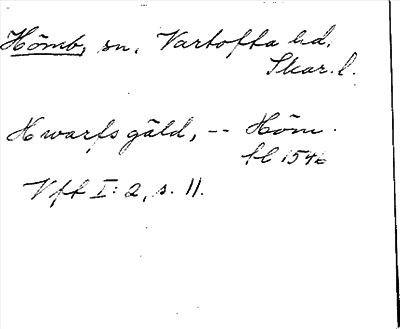 Hömb, sn, Vartofta hd.
Skar. l.
Hwarfs gäld, -- Höm.
fl 1546
Vff I: 2, s. 11.